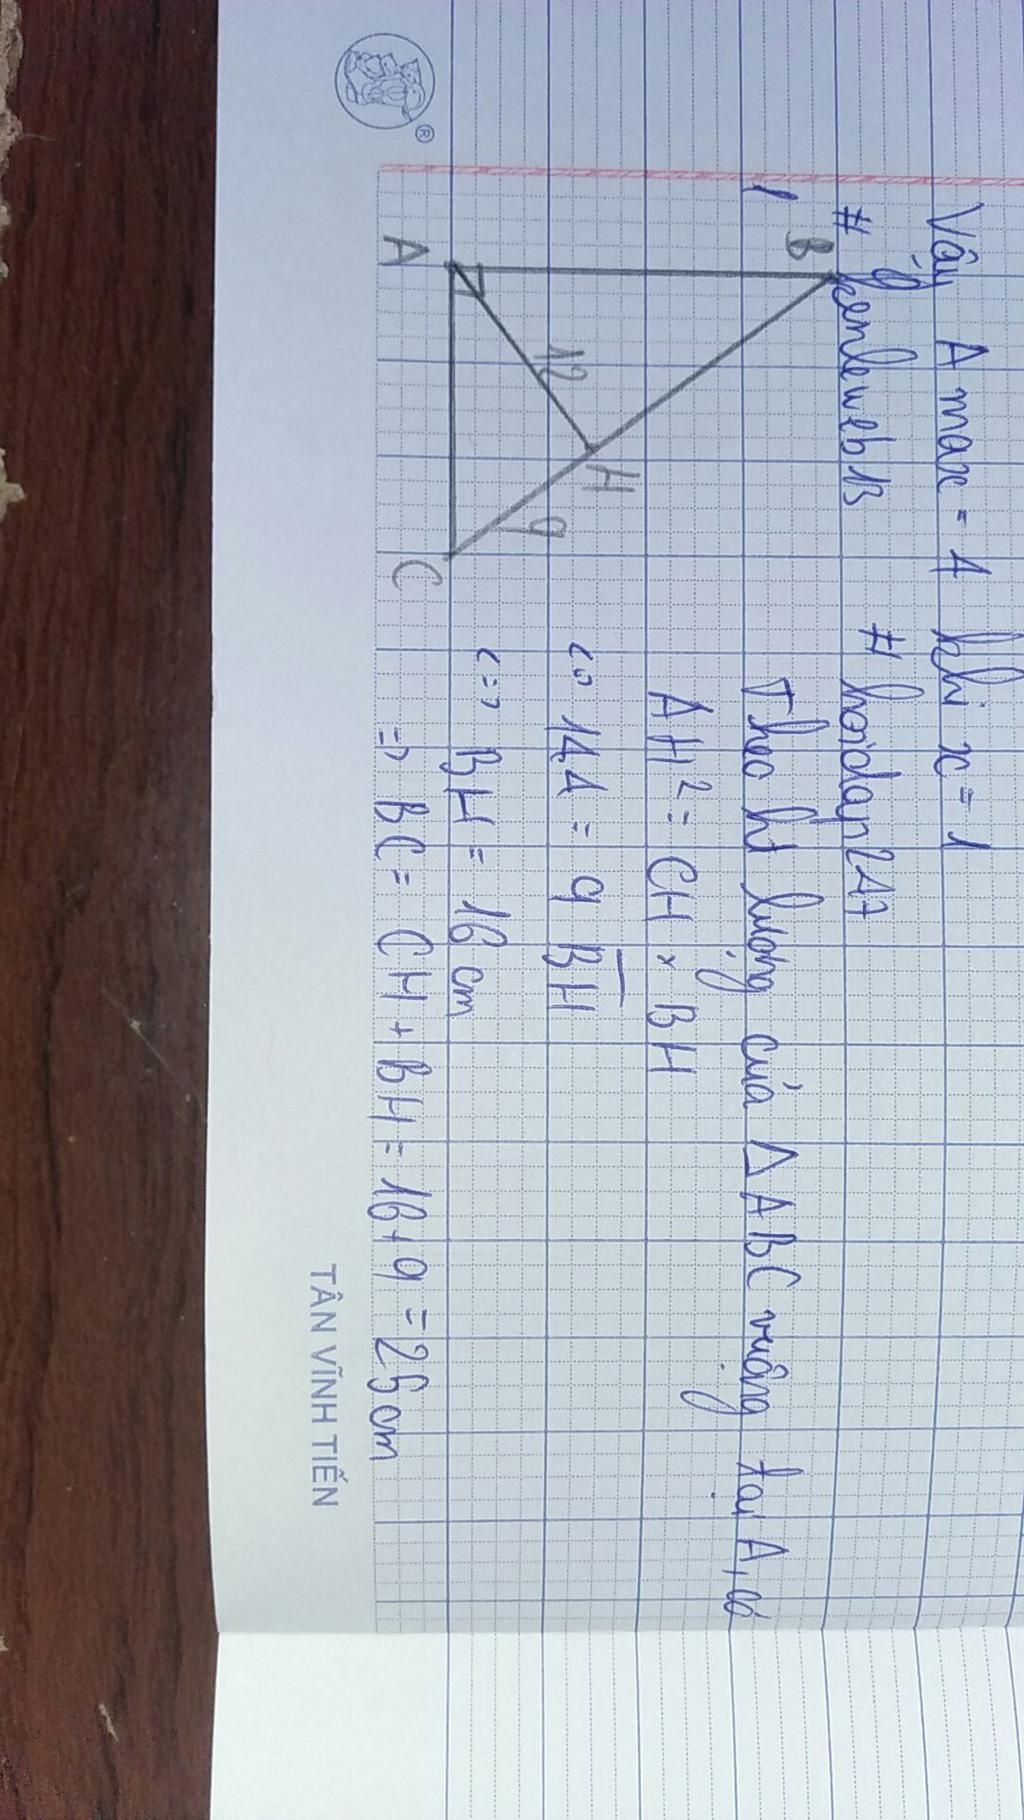 Vậy A max = 4 khi x = 1
# kenlewebB # hoidap247
1
B
A
C
H
12
9
Theo ht lượng của ΔABC vuông tại A, có
AH² = CH × BH
<=> 144 = 9 BH
<=> BH = 16 cm
=> BC = CH + BH = 16 + 9 = 25 cm
TÂN VĨNH TIẾN
®